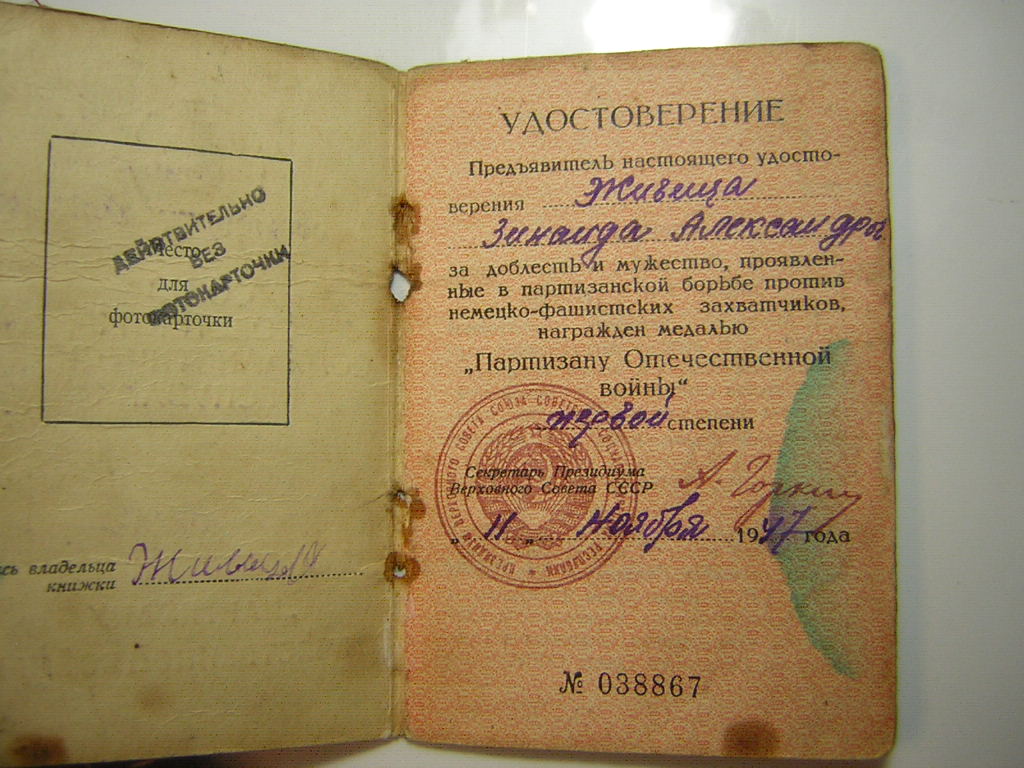 ДЕЙСТВИТЕЛЬНО
БЕЗ
ФОТОКАРТОЧКИ
Место
для
фотокарточки
сь владельца
книжки
УДОСТОВЕРЕНИЕ
Предъявитель настоящего удосто-
верения
Зинаида Александр
за доблесть и мужество, проявлен-
ные в партизанской борьбе против
немецко-фашистских захватчиков,
награжден медалью
„Партизану Отечественной
войны“
первой степени
Секретарь Президиума
Верховного Совета СССР А. Горкин
„11„ Ноября 1947 года
№ 038867